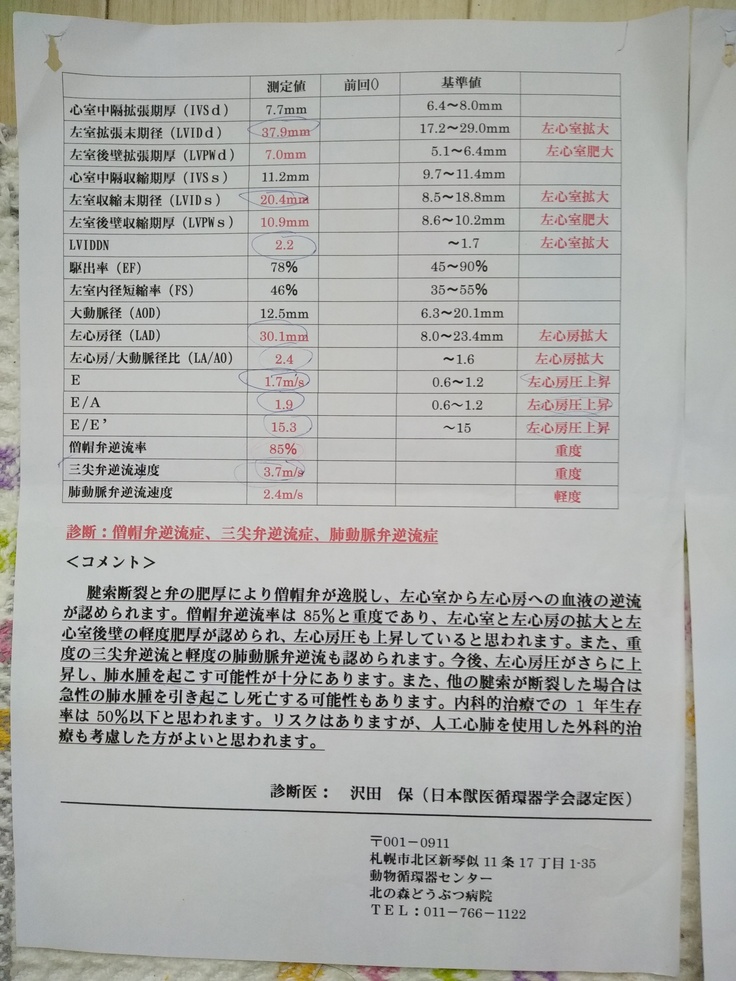 測定値 前回() 基準値
心室中隔拡張期厚（IVSｄ） 7.7mm 6.4～8.0mm
左室拡張末期径（LVIDｄ） 37.9mm 17.2～29.0mm 左心室拡大
左室後壁拡張期厚（LVPWｄ） 7.0mm 5.1～6.4mm 左心室肥大
心室中隔収縮期厚（IVSｓ） 11.2mm 9.7～11.4mm
左室収縮末期径（LVIDｓ） 20.4mm 8.5～18.8mm 左心室拡大
左室後壁収縮期厚（LVPWｓ） 10.9mm 8.6～10.2mm 左心室肥大
LVIDDN 2.2 ～1.7 左心室拡大
駆出率（EF） 78% 45～90%
左室内径短縮率（FS） 46% 35～55%
大動脈径（AOD） 12.5mm 6.3～20.1mm
左心房径（LAD） 30.1mm 8.0～23.4mm 左心房拡大
左心房/大動脈径比（LA/AO） 2.4 ～1.6 左心房拡大
Ｅ 1.7m/s 0.6～1.2 左心房圧上昇
Ｅ/Ａ 1.9 0.6～1.2 左心房圧上昇
Ｅ/Ｅ’ 15.3 ～15 左心房圧上昇
僧帽弁逆流率 85% 重度
三尖弁逆流速度 3.7m/s 重度
肺動脈弁逆流速度 2.4m/s 軽度
診断：僧帽弁逆流症、三尖弁逆流症、肺動脈弁逆流症
＜コメント＞
腱索断裂と弁の肥厚により僧帽弁が逸脱し、左心室から左心房への血液の逆流
が認められます。僧帽弁逆流率は 85%と重度であり、左心室と左心房の拡大と左
心室後壁の軽度肥厚が認められ、左心房圧も上昇していると思われます。また、重
度の三尖弁逆流と軽度の肺動脈弁逆流も認められます。今後、左心房圧がさらに上
昇し、肺水腫を起こす可能性が十分にあります。また、他の腱索が断裂した場合は
急性の肺水腫を引き起こし死亡する可能性もあります。内科的治療での 1 年生存
率は 50%以下と思われます。リスクはありますが、人工心肺を使用した外科的治
療も考慮した方がよいと思われます。
診断医： 沢田 保（日本獣医循環器学会認定医）
〒001－0911
札幌市北区新琴似 11 条 17 丁目 1-35
動物循環器センター
北の森どうぶつ病院
ＴＥＬ：011－766－1122